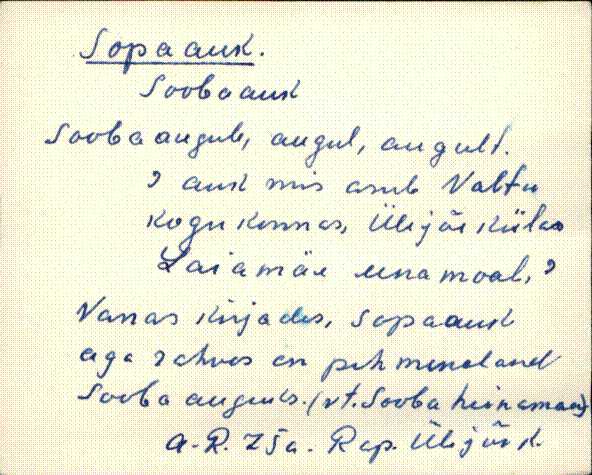 Sopaauk.
Soobaauk
Soobaaugule, augul, augult.
? auk mis asub Valtu
kogukonnas, Ülejõe külas
Laiamäe eenamoal, ?
Vanas kirjades, sopaauk
aga rahvas on pehmendand
Sooba auguks. (vt. Sooba heinamaa)
A.R. 75a. Rap. Ülejõe k.